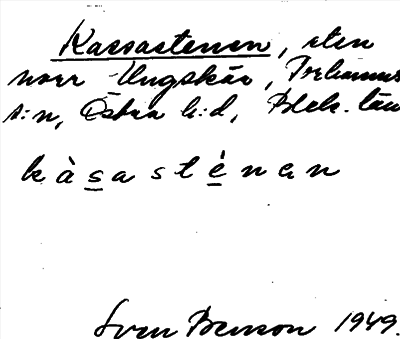 Kassastenen, sten
norr Ungskär, Torhamns
s:n, Östra h:d, Blek. län
kàsasténan
Sven Benson 1949.